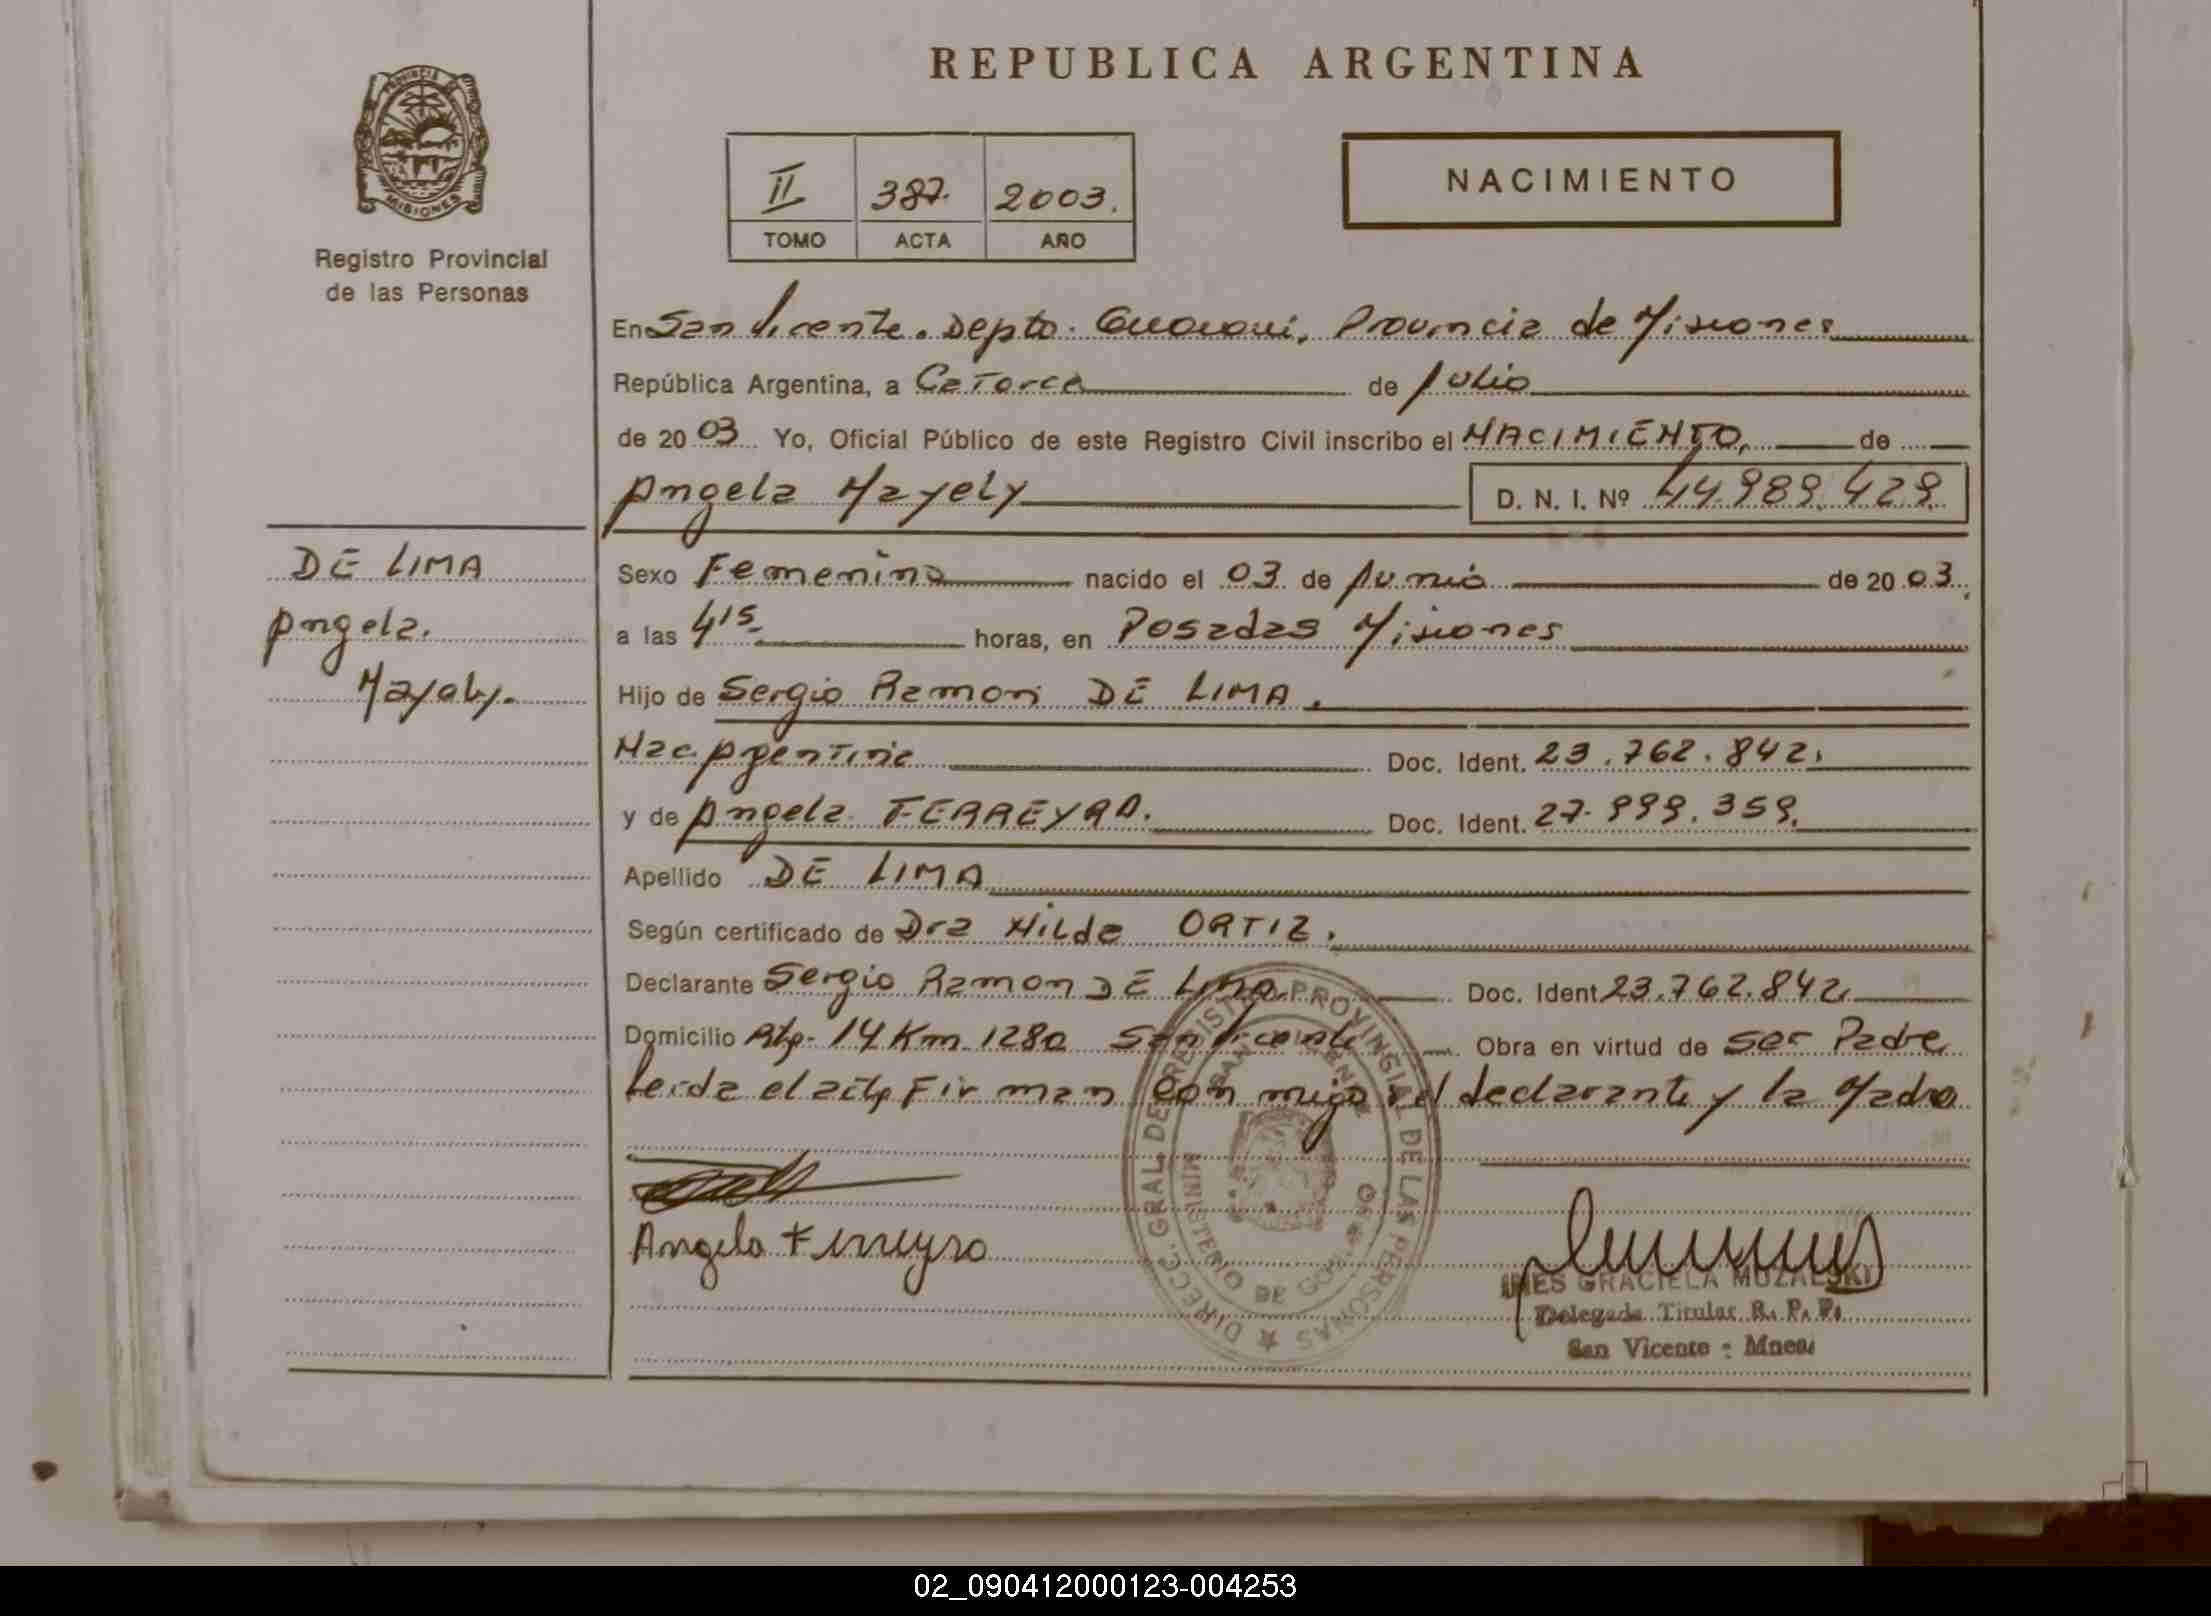 REPUBLICA ARGENTINA
PROVINCIA DE
MISIONES
Registro Provincial
de las Personas
II 387. 2003.
TOMO ACTA AÑO
NACIMIENTO
En San Vicente. Depto. Guarani, Provincia de Misiones
República Argentina, a Catorce de Julio
de 2003 Yo, Oficial Público de este Registro Civil inscribo el NACIMIENTO, de
Angela Mayely D. N. I. Nº 44.989.429.
DE LIMA
Angela.
Mayely.
Sexo Femenino nacido el 03 de Junio de 2003.
a las 4 15 horas, en Posadas Misiones
Hijo de Sergio Ramon DE LIMA.
Nac. Argentina Doc. Ident. 23.762.842.
y de Angela FERREYRA. Doc. Ident. 27.999.359.
Apellido DE LIMA
Según certificado de Dra Hilda ORTIZ.
Declarante Sergio Ramon DE LIMA. Doc. Ident 23.762.842.
Domicilio Rta. 14 Km 1280 San Vicente Obra en virtud de ser Padre
Leida el acta Firman con migo el declarante y la Madre
Angela Ferreyra
DIRECC. GRAL. DE REGISTRO PROVINCIAL DE LAS PERSONAS
SAN VICENTE
MINISTERIO DE GOB.
INES GRACIELA MUZALSKI
Delegada Titular R. P. P.
San Vicente - Mnes.
02_090412000123-004253